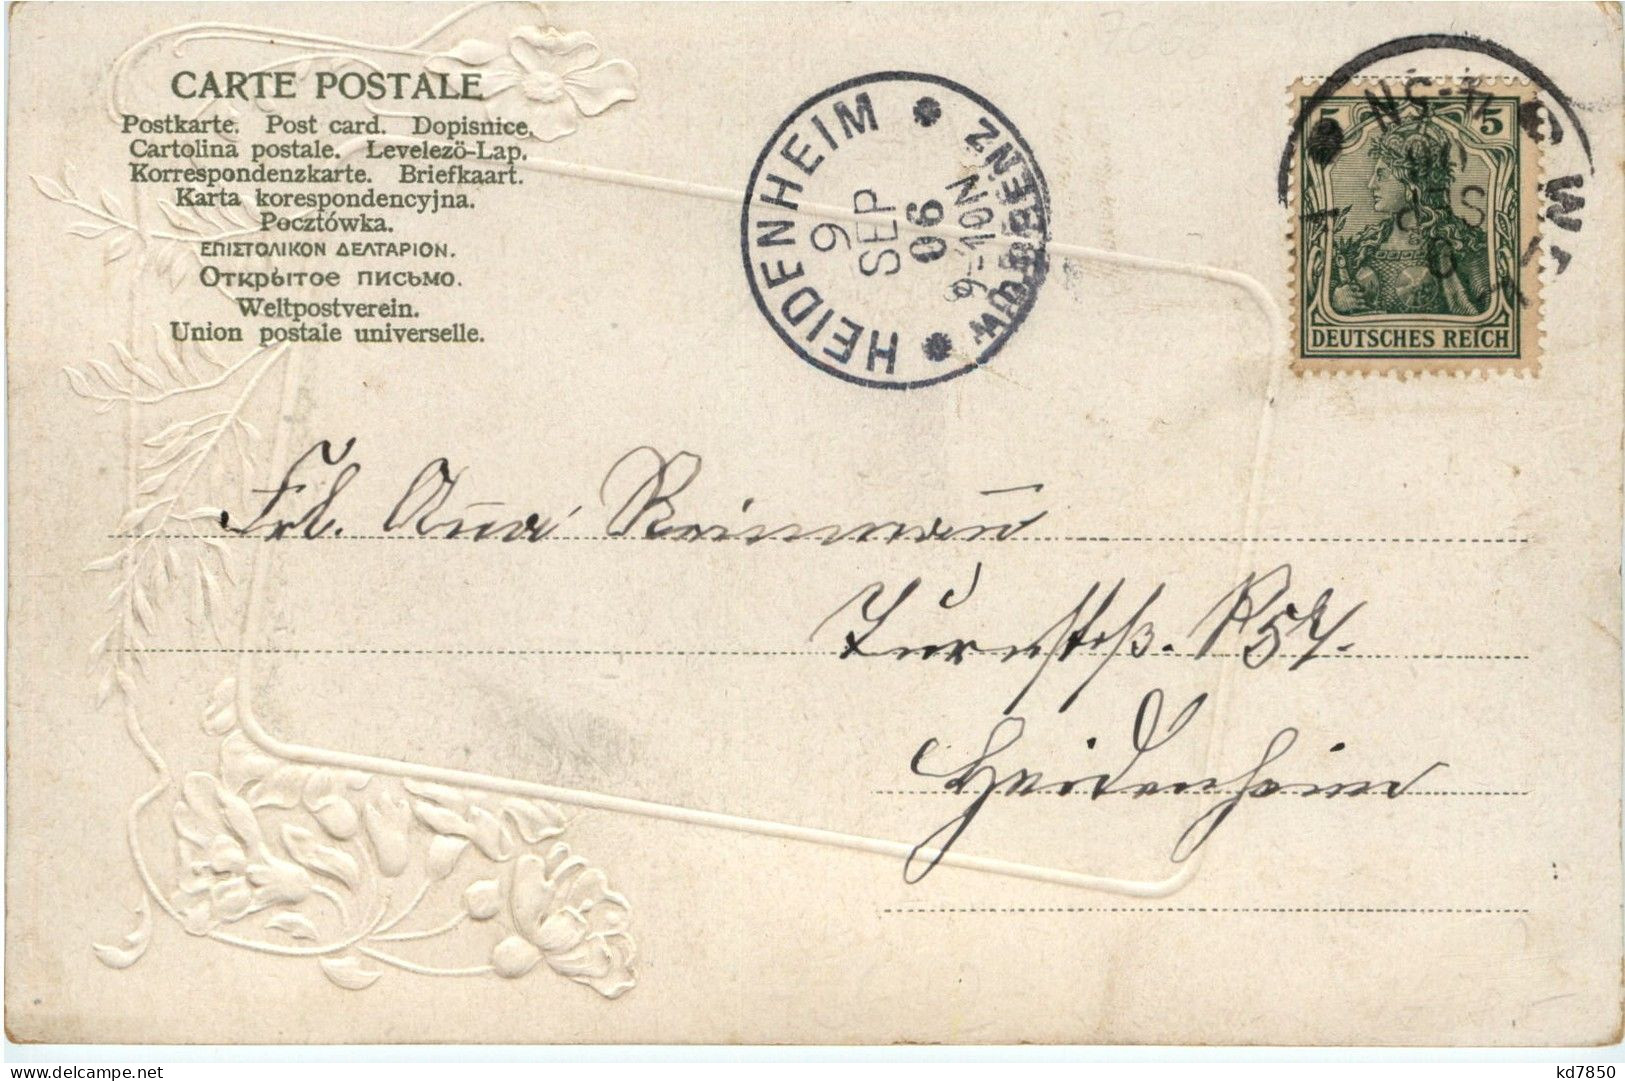 CARTE POSTALE
Postkarte. Post card. Dopisnice.
Cartolina postale. Levelezö-Lap.
Korrespondenzkarte. Briefkaart.
Karta korespondencyjna.
Pocztówka.
ΕΠΙΣΤΟΛΙΚΟΝ ΔΕΛΤΑΡΙΟΝ.
Открытое письмо.
Weltpostverein.
Union postale universelle.
HEIDENHEIM
9
SEP
06
9-10N
5 5
DEUTSCHES REICH
Frl. Anna
Heidenheim
delcampe.net
kd7850